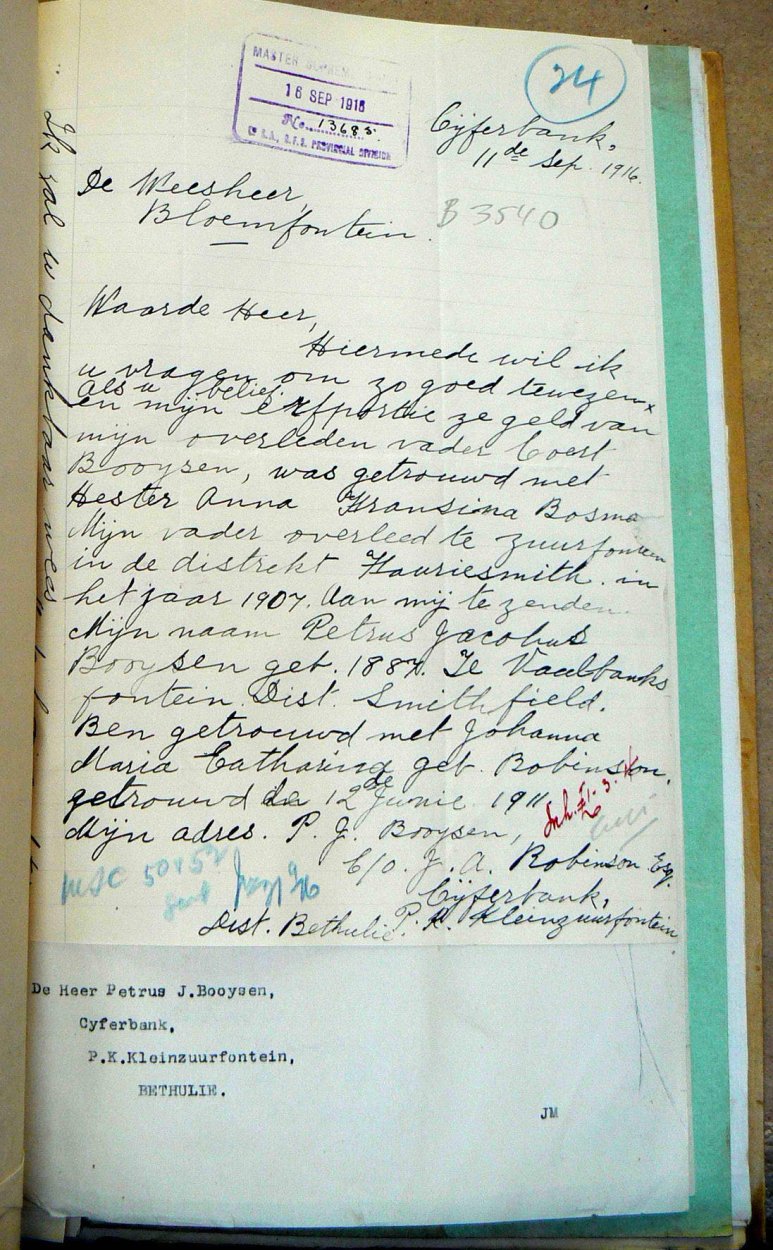 MASTER SUPREME
16 SEP 1916
No. 13685
O.F.S. PROVINCIAL DIVISION
24
Cijferbank,
11de Sep. 1916.
De Weesheer,
Bloemfontein.
B 3540
Waarde Heer,
Hiermede wil ik
u vragen om zo goed tewezen
als u belief.
en mijn Erfportie ze geld van
mijn overleden vader Coert
Booysen, was getrouwd met
Hester Anna Fransina Bosma
Mijn vader overleed te zuurfontein
in de distrekt Fauriesmith. in
het jaar 1907. Aan mij te zenden.
Mijn naam Petrus Jacobus
Booysen geb. 1887. Te Vaalbanks
fontein Dist. Smithfield.
Ben getrouwd met Johanna
Maria Catharina geb. Robinson.
getrouwd de 12de Junie 1911
Mijn adres. P. J. Booysen,
C/O. J. A. Robinson Esq.
Cijferbank,
P. K. Kleinzuurfontein
Dist. Bethulie.
Ik zal u dankbaar wees
De Heer Petrus J.Booysen,
Cyferbank,
P.K.Kleinzuurfontein,
BETHULIE.
JM